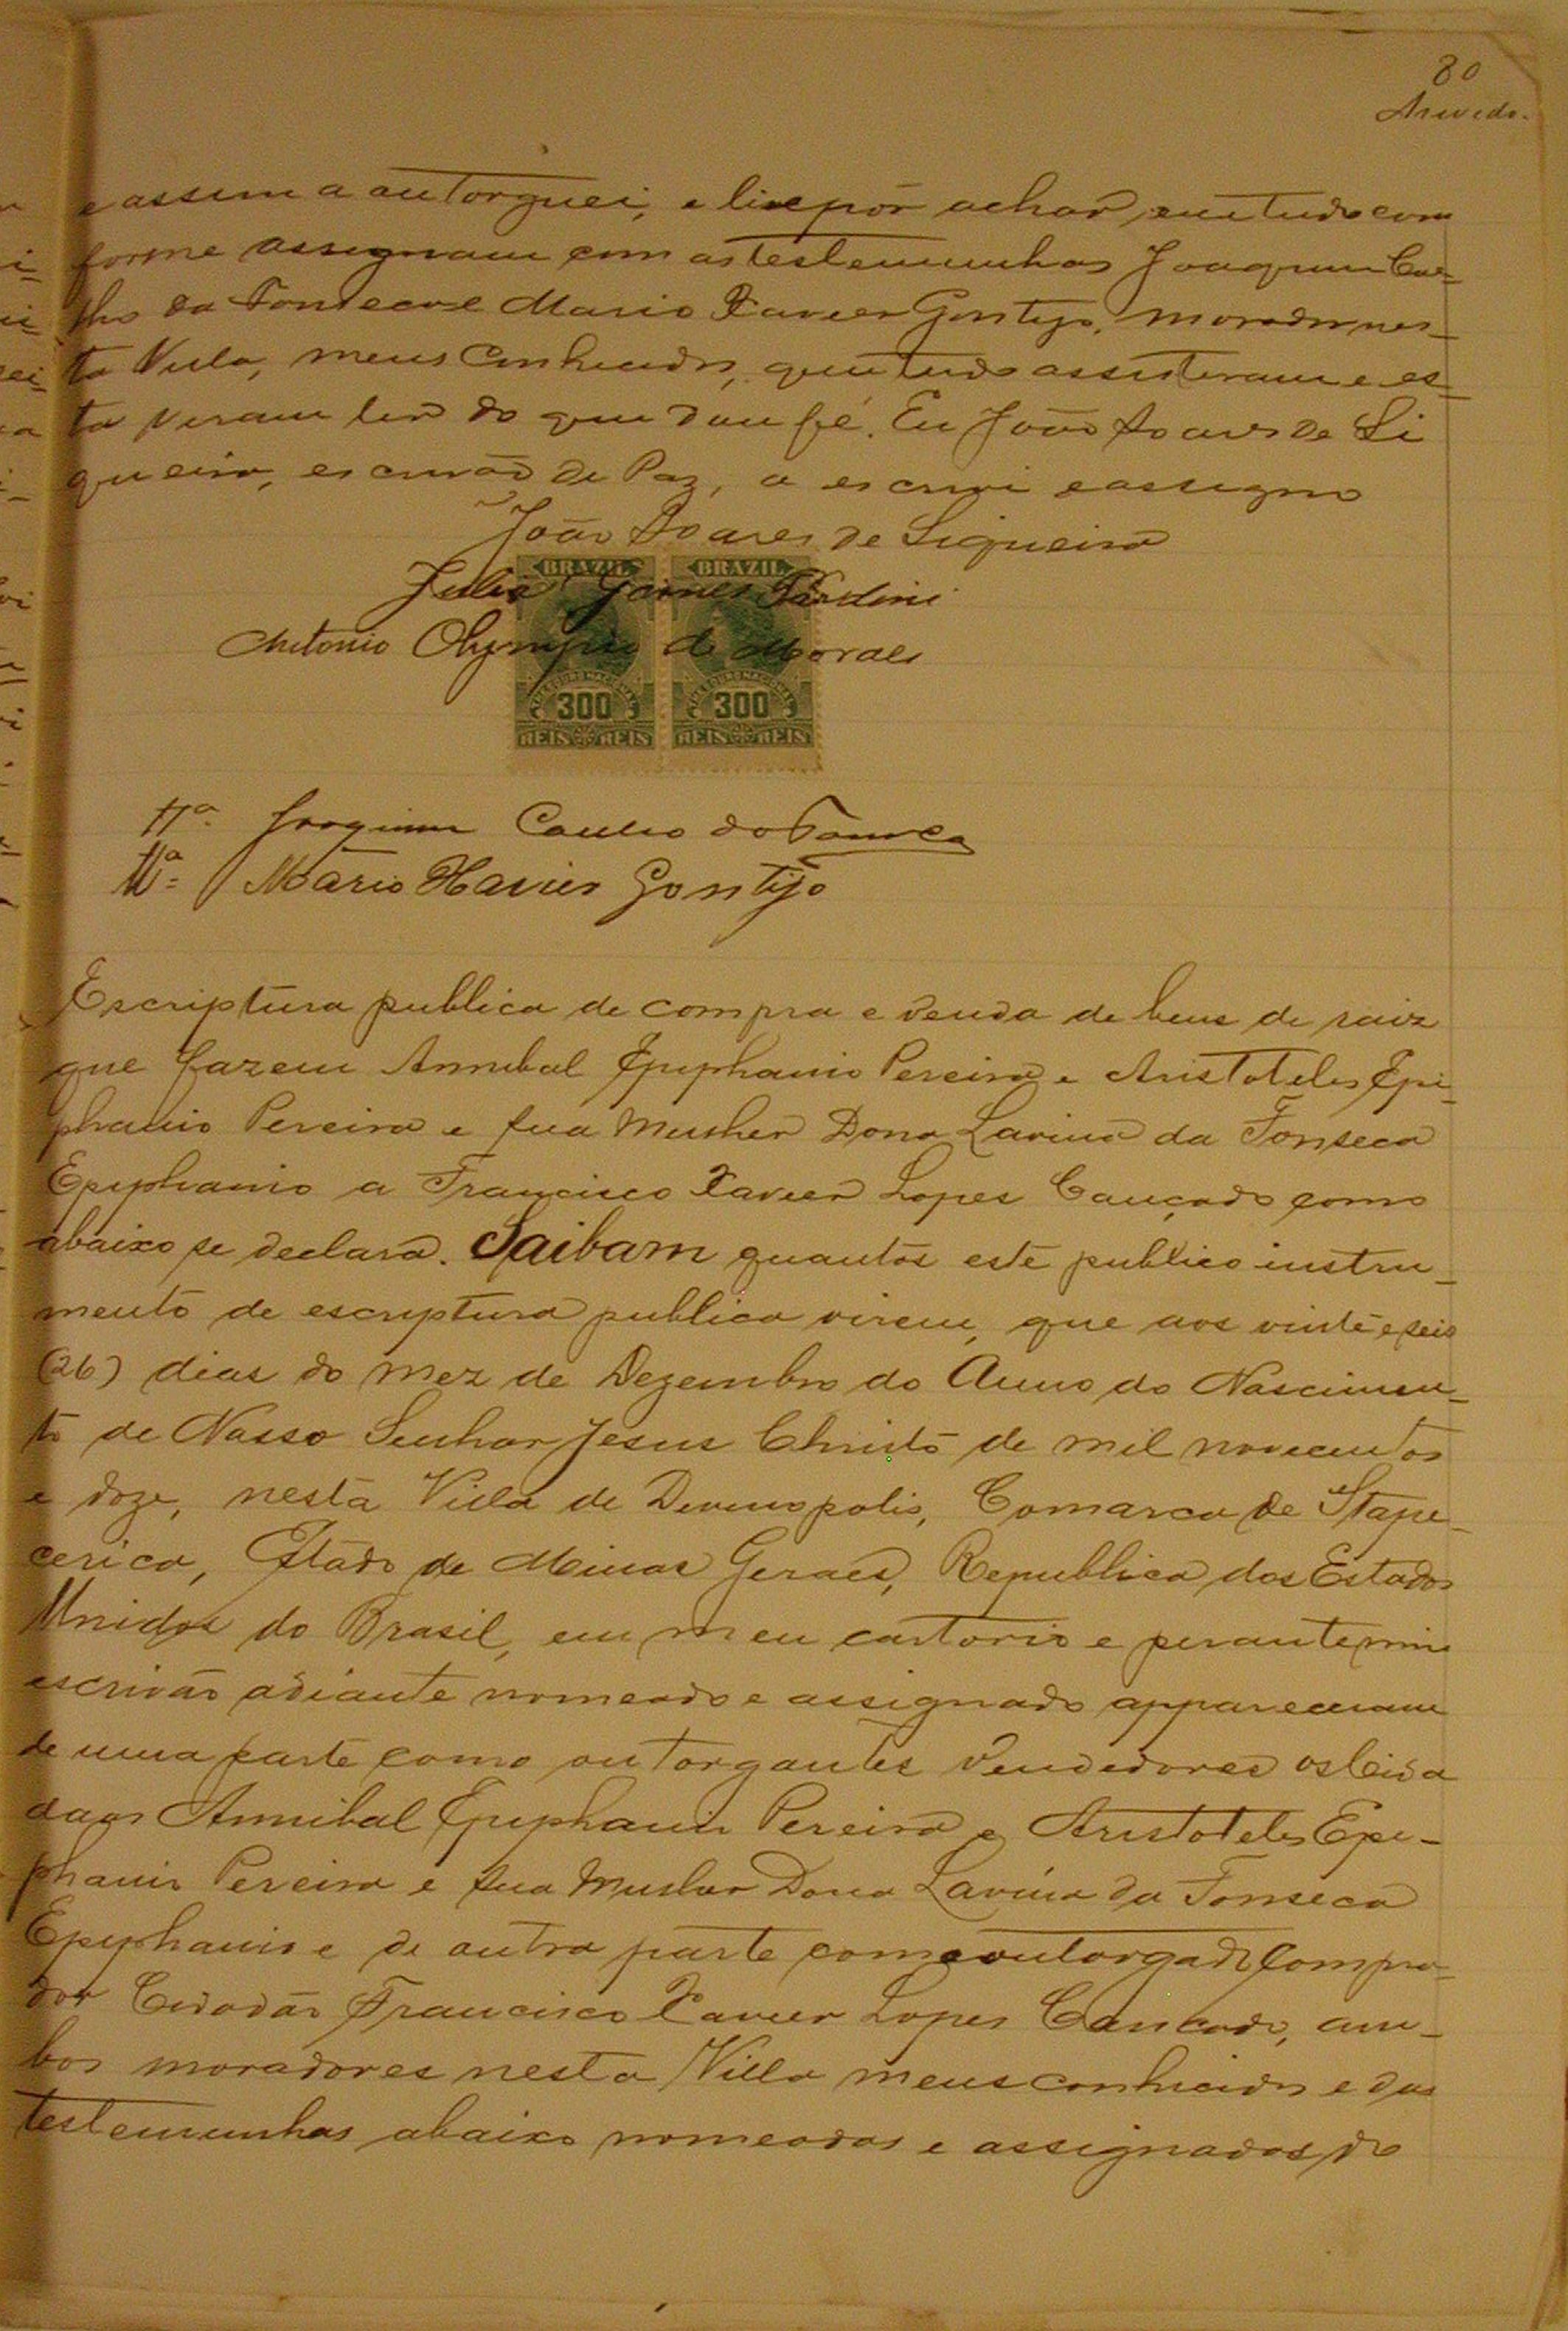 80
Azevedo.
e assim a outorguei, e li e por achar em tudo com
forme assignam com as testemunhas Joaquim Coe-
lho da Fonseca e Mario Xavier Gontijo, morador nes-
ta Villa, meus Conhecidos, que tudo assisteram e es-
ta veram ler do que dou fé. Eu João Soares de Si
queira, escrivão de Paz, a escrevi e assigno
João Soares de Siqueira
BRAZIL BRAZIL
Julio Gomes Pardini
Antonio Olympio de Moraes
300 300
REIS REIS REIS REIS
Joaquim Coelho da Fonseca
Mario Xavier Gontijo
Escriptura publica de compra e venda de bens de raiz
que fazem Annibal Epiphanio Pereira e Aristoteles Epi
phanio Pereira e sua Mulher Dona Lavina da Fonseca
Epiphanio a Francisco Xavier Lopes Cançado como
abaixo se declara. Saibam quantos este publico instru-
mento de escriptura publica virem, que aos vinte e seis
(26) dias do mez de Dezembro do Anno do Nascimen-
to de Nosso Senhor Jesus Christo de mil novecentos
e doze, nesta Villa de Divinopolis, Comarca de Itape-
cerica, Estado de Minas Geraes, Republica dos Estados
Unidos do Brasil, em meu cartorio e perante mim
escrivão adiante nomeado e assignado appareceram
de uma parte como outorgantes Vendedores os Cida
daos Annibal Epiphanio Pereira e Aristoteles Epi-
phanio Pereira e sua Mulher Dona Lavina da Fonseca
Epiphanio e de outra parte como outorgado Compra-
dor Cidadão Francisco Xavier Lopes Cancado, am-
bos moradores nesta Villa meus conhecidos e das
testemunhas abaixo nomeadas e assignadas do